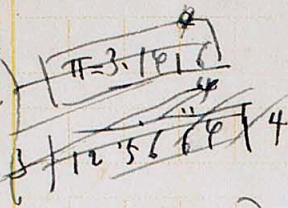 π=3.1416
3)12.5664(4